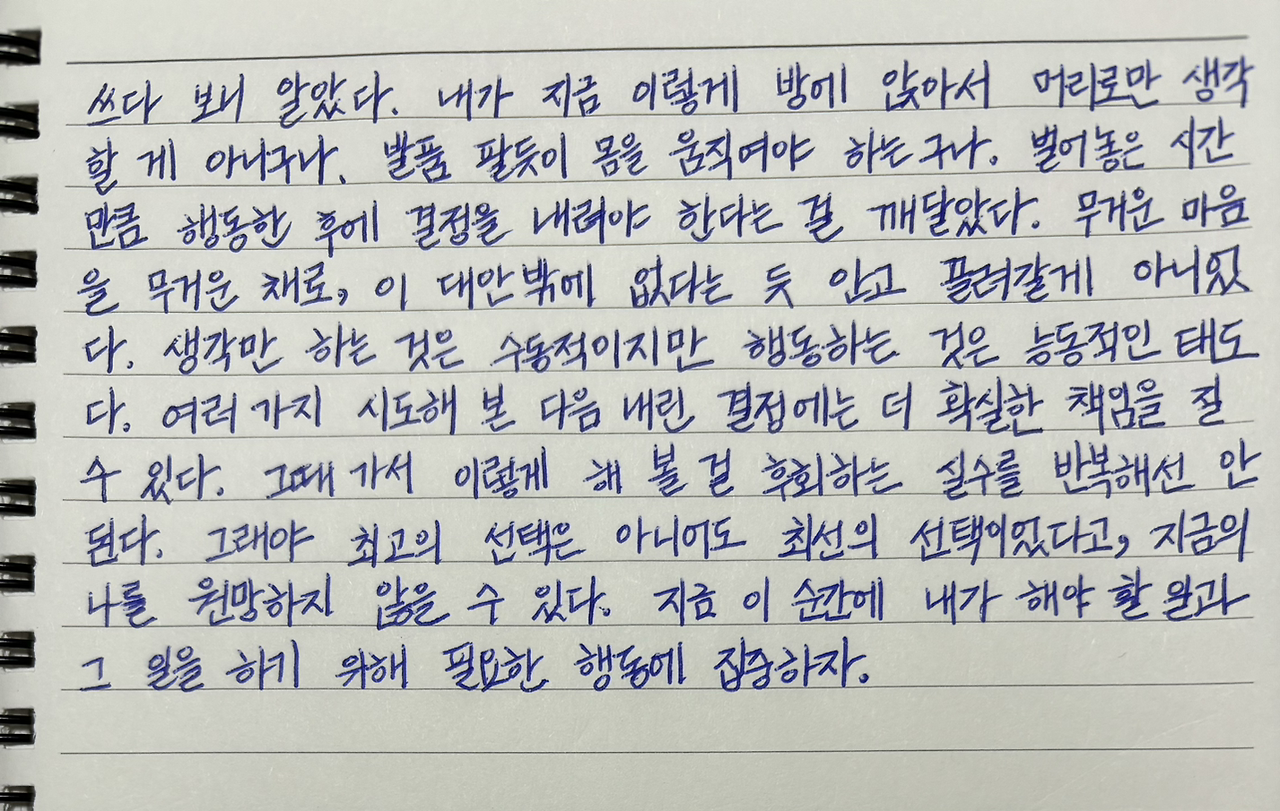 쓰다 보니 알았다. 내가 지금 이렇게 방에 앉아서 머리로만 생각
할 게 아니구나. 발품 팔듯이 몸을 움직여야 하는구나. 벌어놓은 시간
만큼 행동한 후에 결정을 내려야 한다는 걸 깨달았다. 무거운 마음
을 무거운 채로, 이 대안밖에 없다는 듯 안고 끌려갈게 아니었
다. 생각만 하는 것은 수동적이지만 행동하는 것은 능동적인 태도
다. 여러 가지 시도해 본 다음 내린 결정에는 더 확실한 책임을 질
수 있다. 그때 가서 이렇게 해 볼 걸 후회하는 실수를 반복해선 안
된다. 그래야 최고의 선택은 아니어도 최선의 선택이었다고, 지금의
나를 원망하지 않을 수 있다. 지금 이 순간에 내가 해야 할 일과
그 일을 하기 위해 필요한 행동에 집중하자.